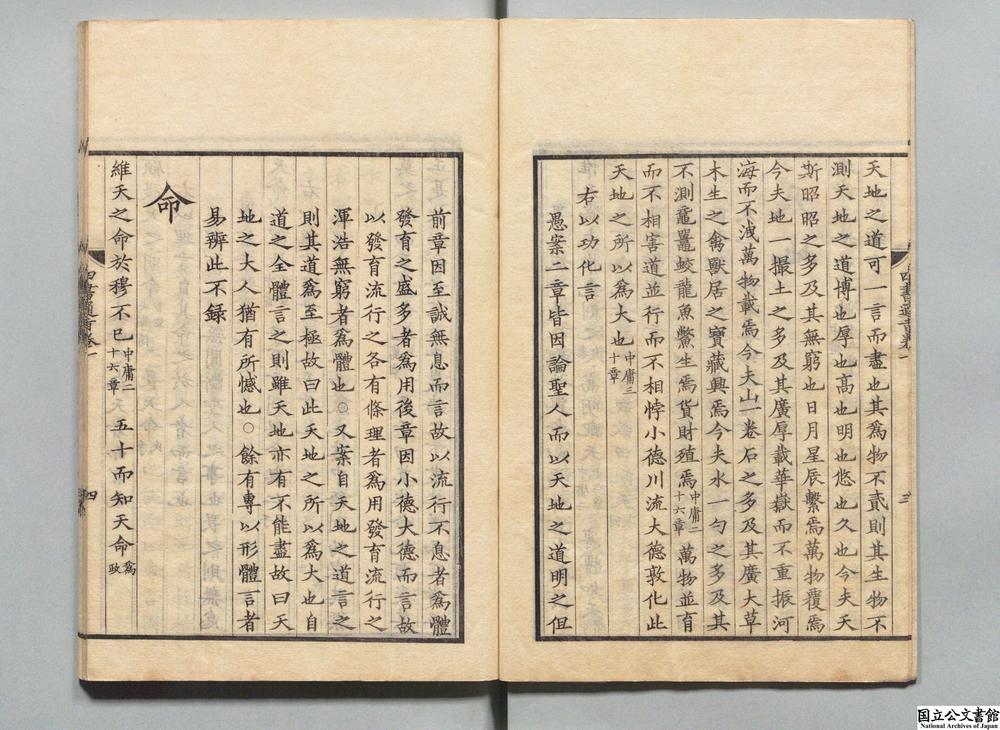 天地之道可一言而盡也其爲物不貳則其生物不
測天地之道博也厚也高也明也悠也久也今夫天
斯昭昭之多及其無窮也日月星辰繫焉萬物覆焉
今夫地一撮土之多及其廣厚載華嶽而不重振河
海而不洩萬物載焉今夫山一卷石之多及其廣大草
木生之禽獸居之寶藏興焉今夫水一勺之多及其
不測黿鼉蛟龍魚鱉生焉貨財殖焉中庸二十六章萬物並育
而不相害道並行而不相悖小德川流大德敦化此
天地之所以爲大也中庸三十章
右以功化言
愚案二章皆因論聖人而以天地之道明之但
三
前章因至誠無息而言故以流行不息者爲體
發育之盛多者爲用後章因小德大德而言故
以發育流行之各有條理者爲用發育流行之
渾浩無窮者爲體也○又案自天地之道言之
則其道爲至極故曰此天地之所以爲大也自
道之全體言之則雖天地亦有不能盡故曰天
地之大人猶有所憾也○餘有專以形體言者
易辨此不録
命
維天之命於穆不已中庸二十六章五十而知天命爲政
四書通旨卷一
四
国立公文書館
National Archives of Japan